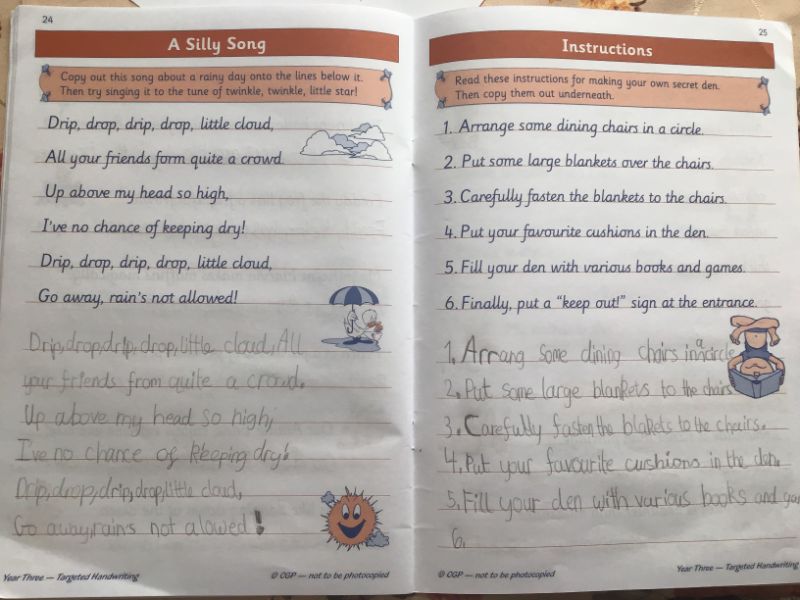 24
A Silly Song
Copy out this song about a rainy day onto the lines below it.
Then try singing it to the tune of twinkle, twinkle, little star!
Drip, drop, drip, drop, little cloud,
All your friends form quite a crowd.
Up above my head so high,
I've no chance of keeping dry!
Drip, drop, drip, drop, little cloud,
Go away, rain's not allowed!
Drip,drop,drip,drop,little cloud, All
your friends from quite a crowd.
Up above my head so high,
I've no chance of keeping dry!
Drip,drop,drip,drop,little cloud,
Go away,rains not alowed!
Year Three — Targeted Handwriting
© CGP — not to be photocopied
25
Instructions
Read these instructions for making your own secret den.
Then copy them out underneath.
1. Arrange some dining chairs in a circle.
2. Put some large blankets over the chairs.
3. Carefully fasten the blankets to the chairs.
4. Put your favourite cushions in the den.
5. Fill your den with various books and games.
6. Finally, put a "keep out!" sign at the entrance.
1. Arrang some dining chairs in a circle
2. Put some large blankets to the chairs
3. Carefully fasten the blakets to the chairs.
4. Put your favourite cushions in the den.
5. Fill your den with various books and gam
6.
© CGP — not to be photocopied
Year Three — Targeted Handwriting